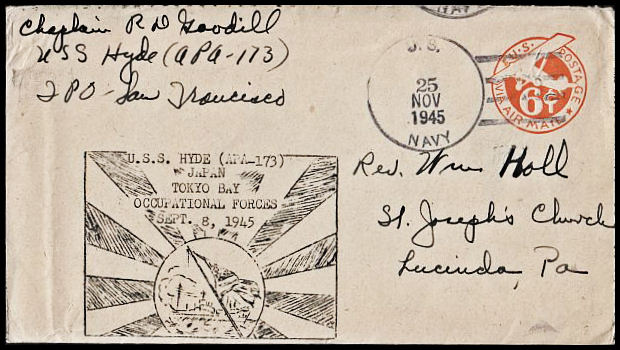 Chaplain R D Goodill
USS Hyde (APA-173)
FPO - San Francisco
NAVY
U.S.
25
NOV
1945
NAVY
U.S. POSTAGE
6¢
VIA AIR MAIL
U.S.S. HYDE (APA-173)
JAPAN
TOKYO BAY
OCCUPATIONAL FORCES
SEPT. 8, 1945
Rev. Wm Holl
St. Joseph's Church
Lucinda, Pa